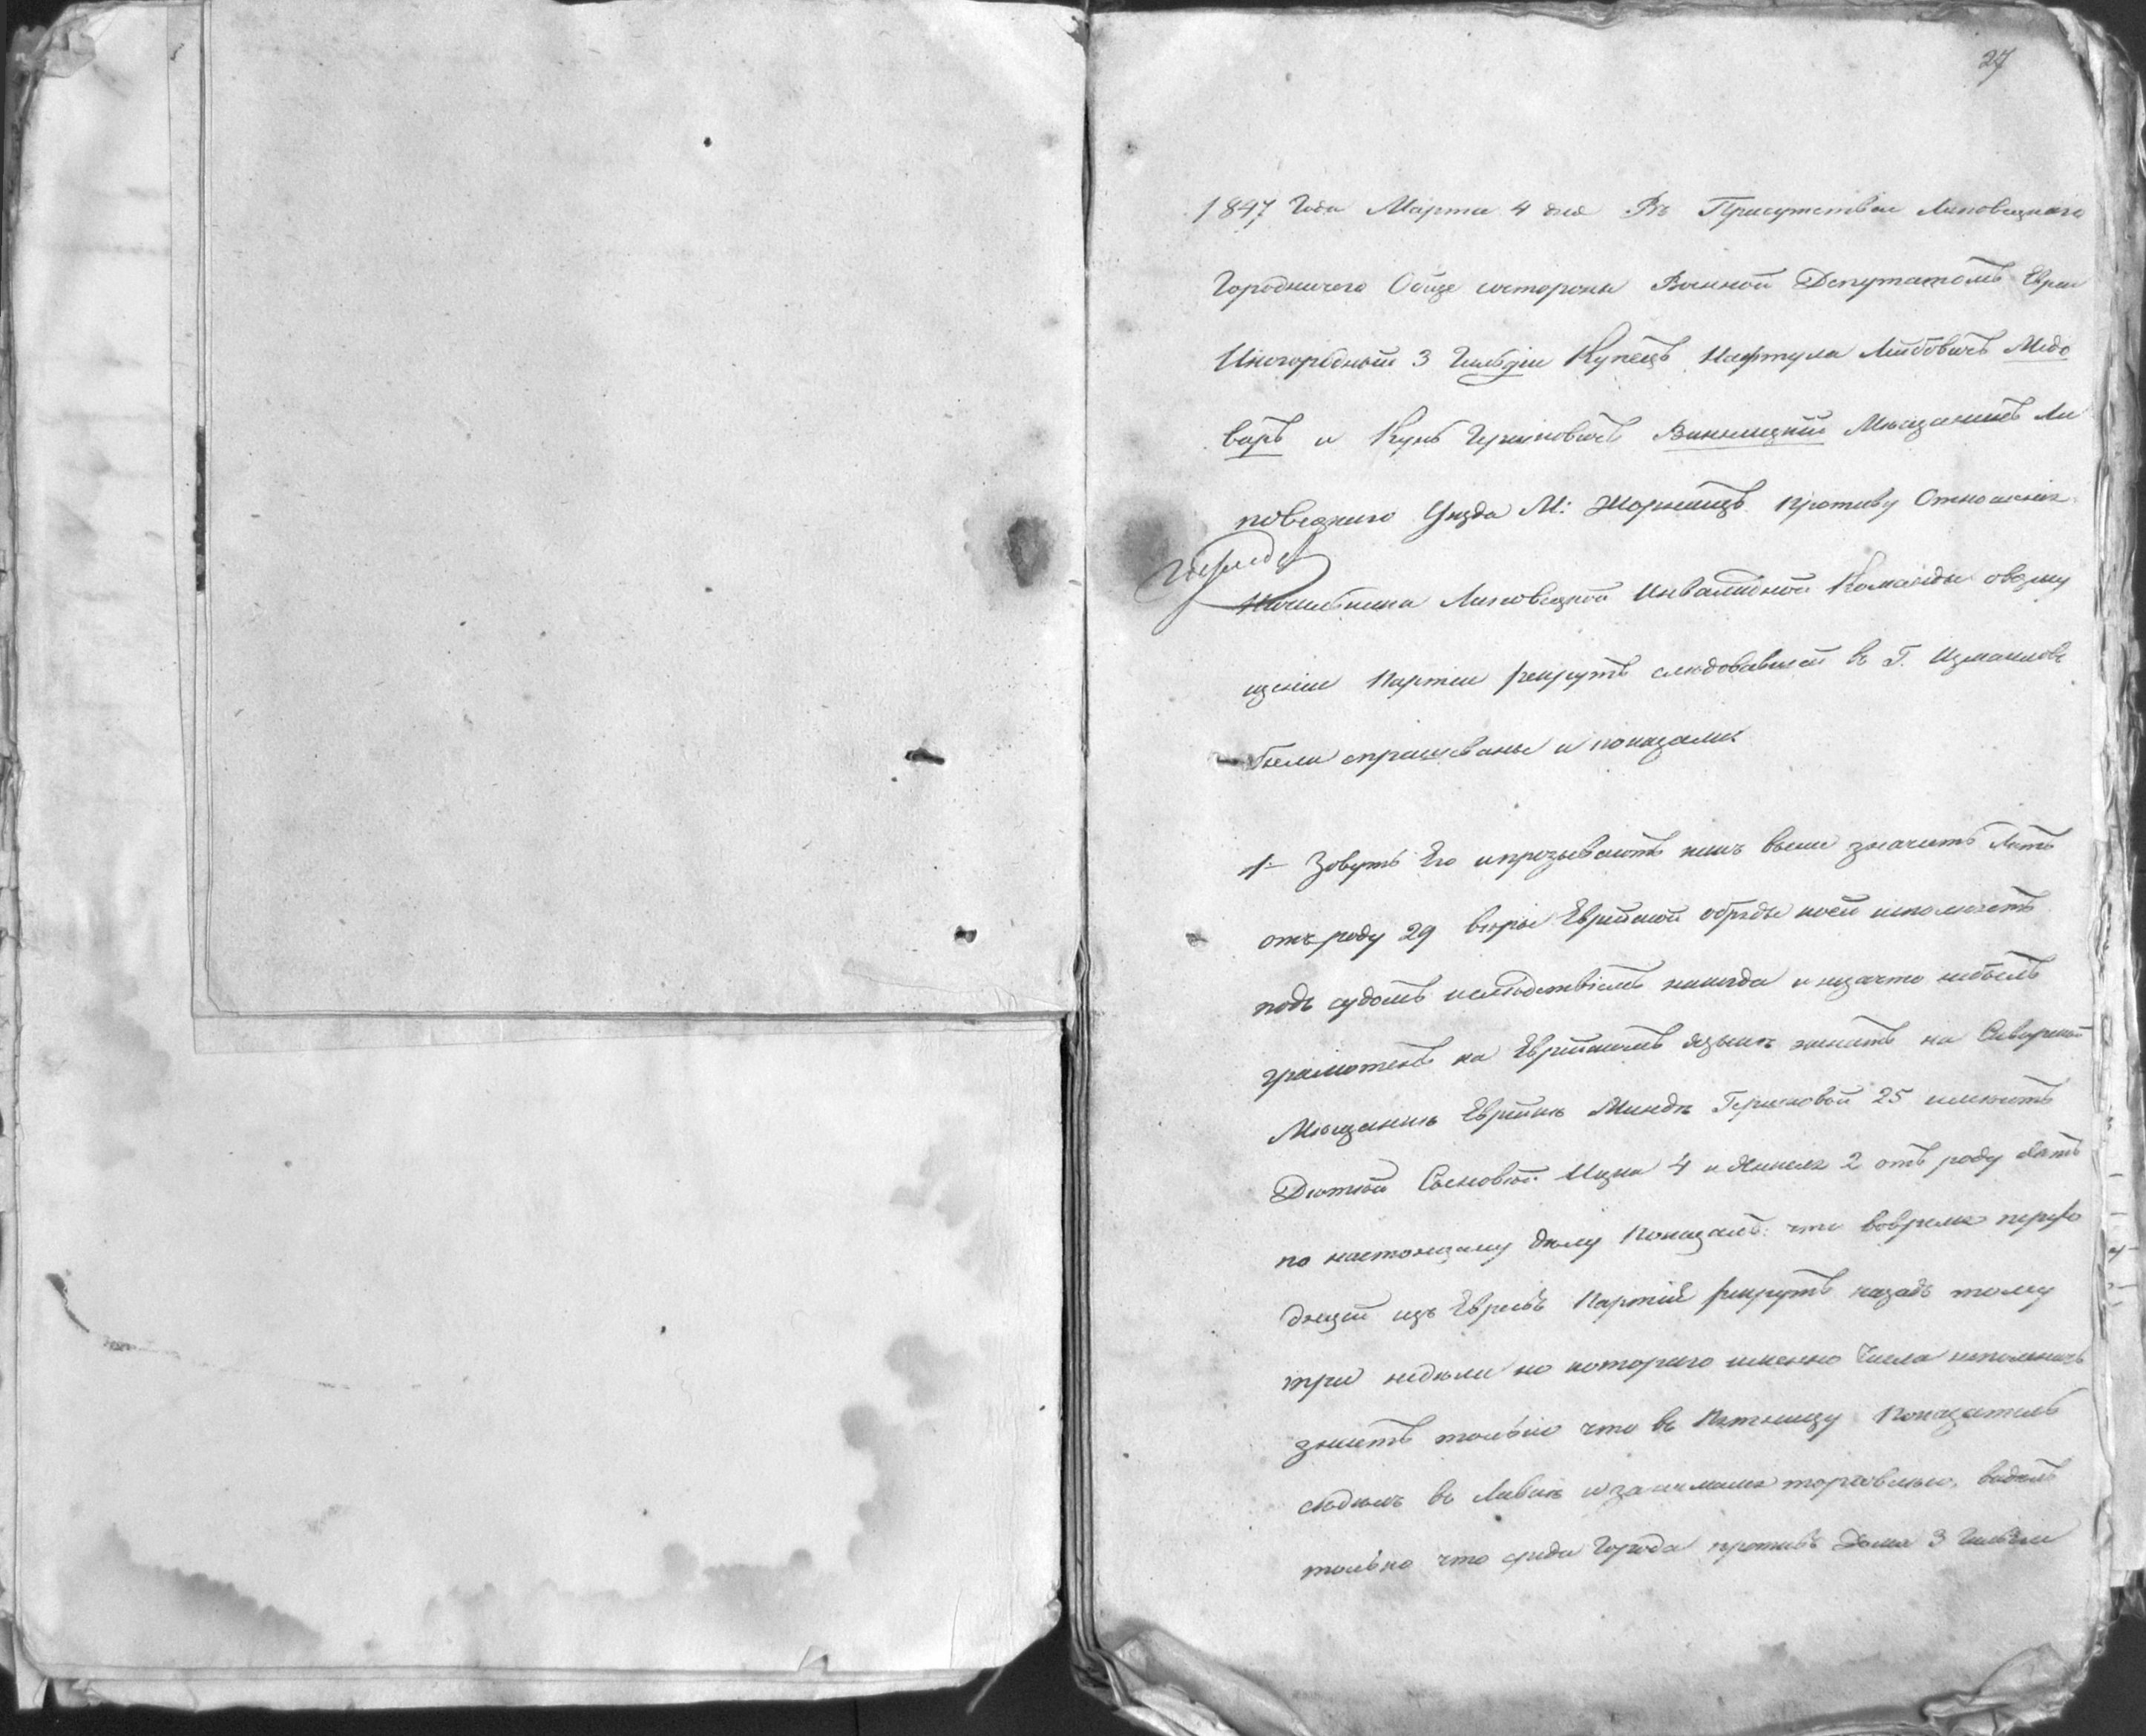 27
1847 Года Марта 4 дня Въ Присутствіи Липовецкаго
Городничего Обще состороны Военной Депутатомъ Евреи
Иногородный 3 Гильдіи Купецъ Нафтула Лейбовичъ Медо
варъ и Кунъ Гершковичъ Винницкій Мѣщанинъ Ли
повецкаго Уѣзда М: Жорнищъ противу Отношенія
Начальника Липовецкой Инвалидной Команды овозму
щеніи Партіи рекрутъ слѣдовавшей въ Г. Измаиловъ
были спрашеваны и показали
1е Зовутъ Его ипрозываютъ какъ выше значитъ Лѣтъ
отъ роду 29 вѣры Еврейской обряды коей исполняетъ
подъ судомъ ислѣдствіемъ никогда и низачто небылъ
грамотенъ на Еврейскомъ языкѣ женатъ на Сквирской
Мѣщанкѣ Еврейкѣ Миндѣ Гершковой 25 имѣетъ
Дѣтей Сыновей Ицка 4 и Янкеля 2 отъ роду лѣтъ
по настоящему дѣлу Показалъ: что вовремя перехо
дящей изъ Евреевъ Партіи рекрутъ назадъ тому
три недѣли но котораго именно Числа непомнитъ
знаетъ только что въ Пятницу Показатель
сидѣлъ въ Лавкѣ изанимался торговлею, видѣлъ
только что среди Города противъ Дома 3 Гильдіи